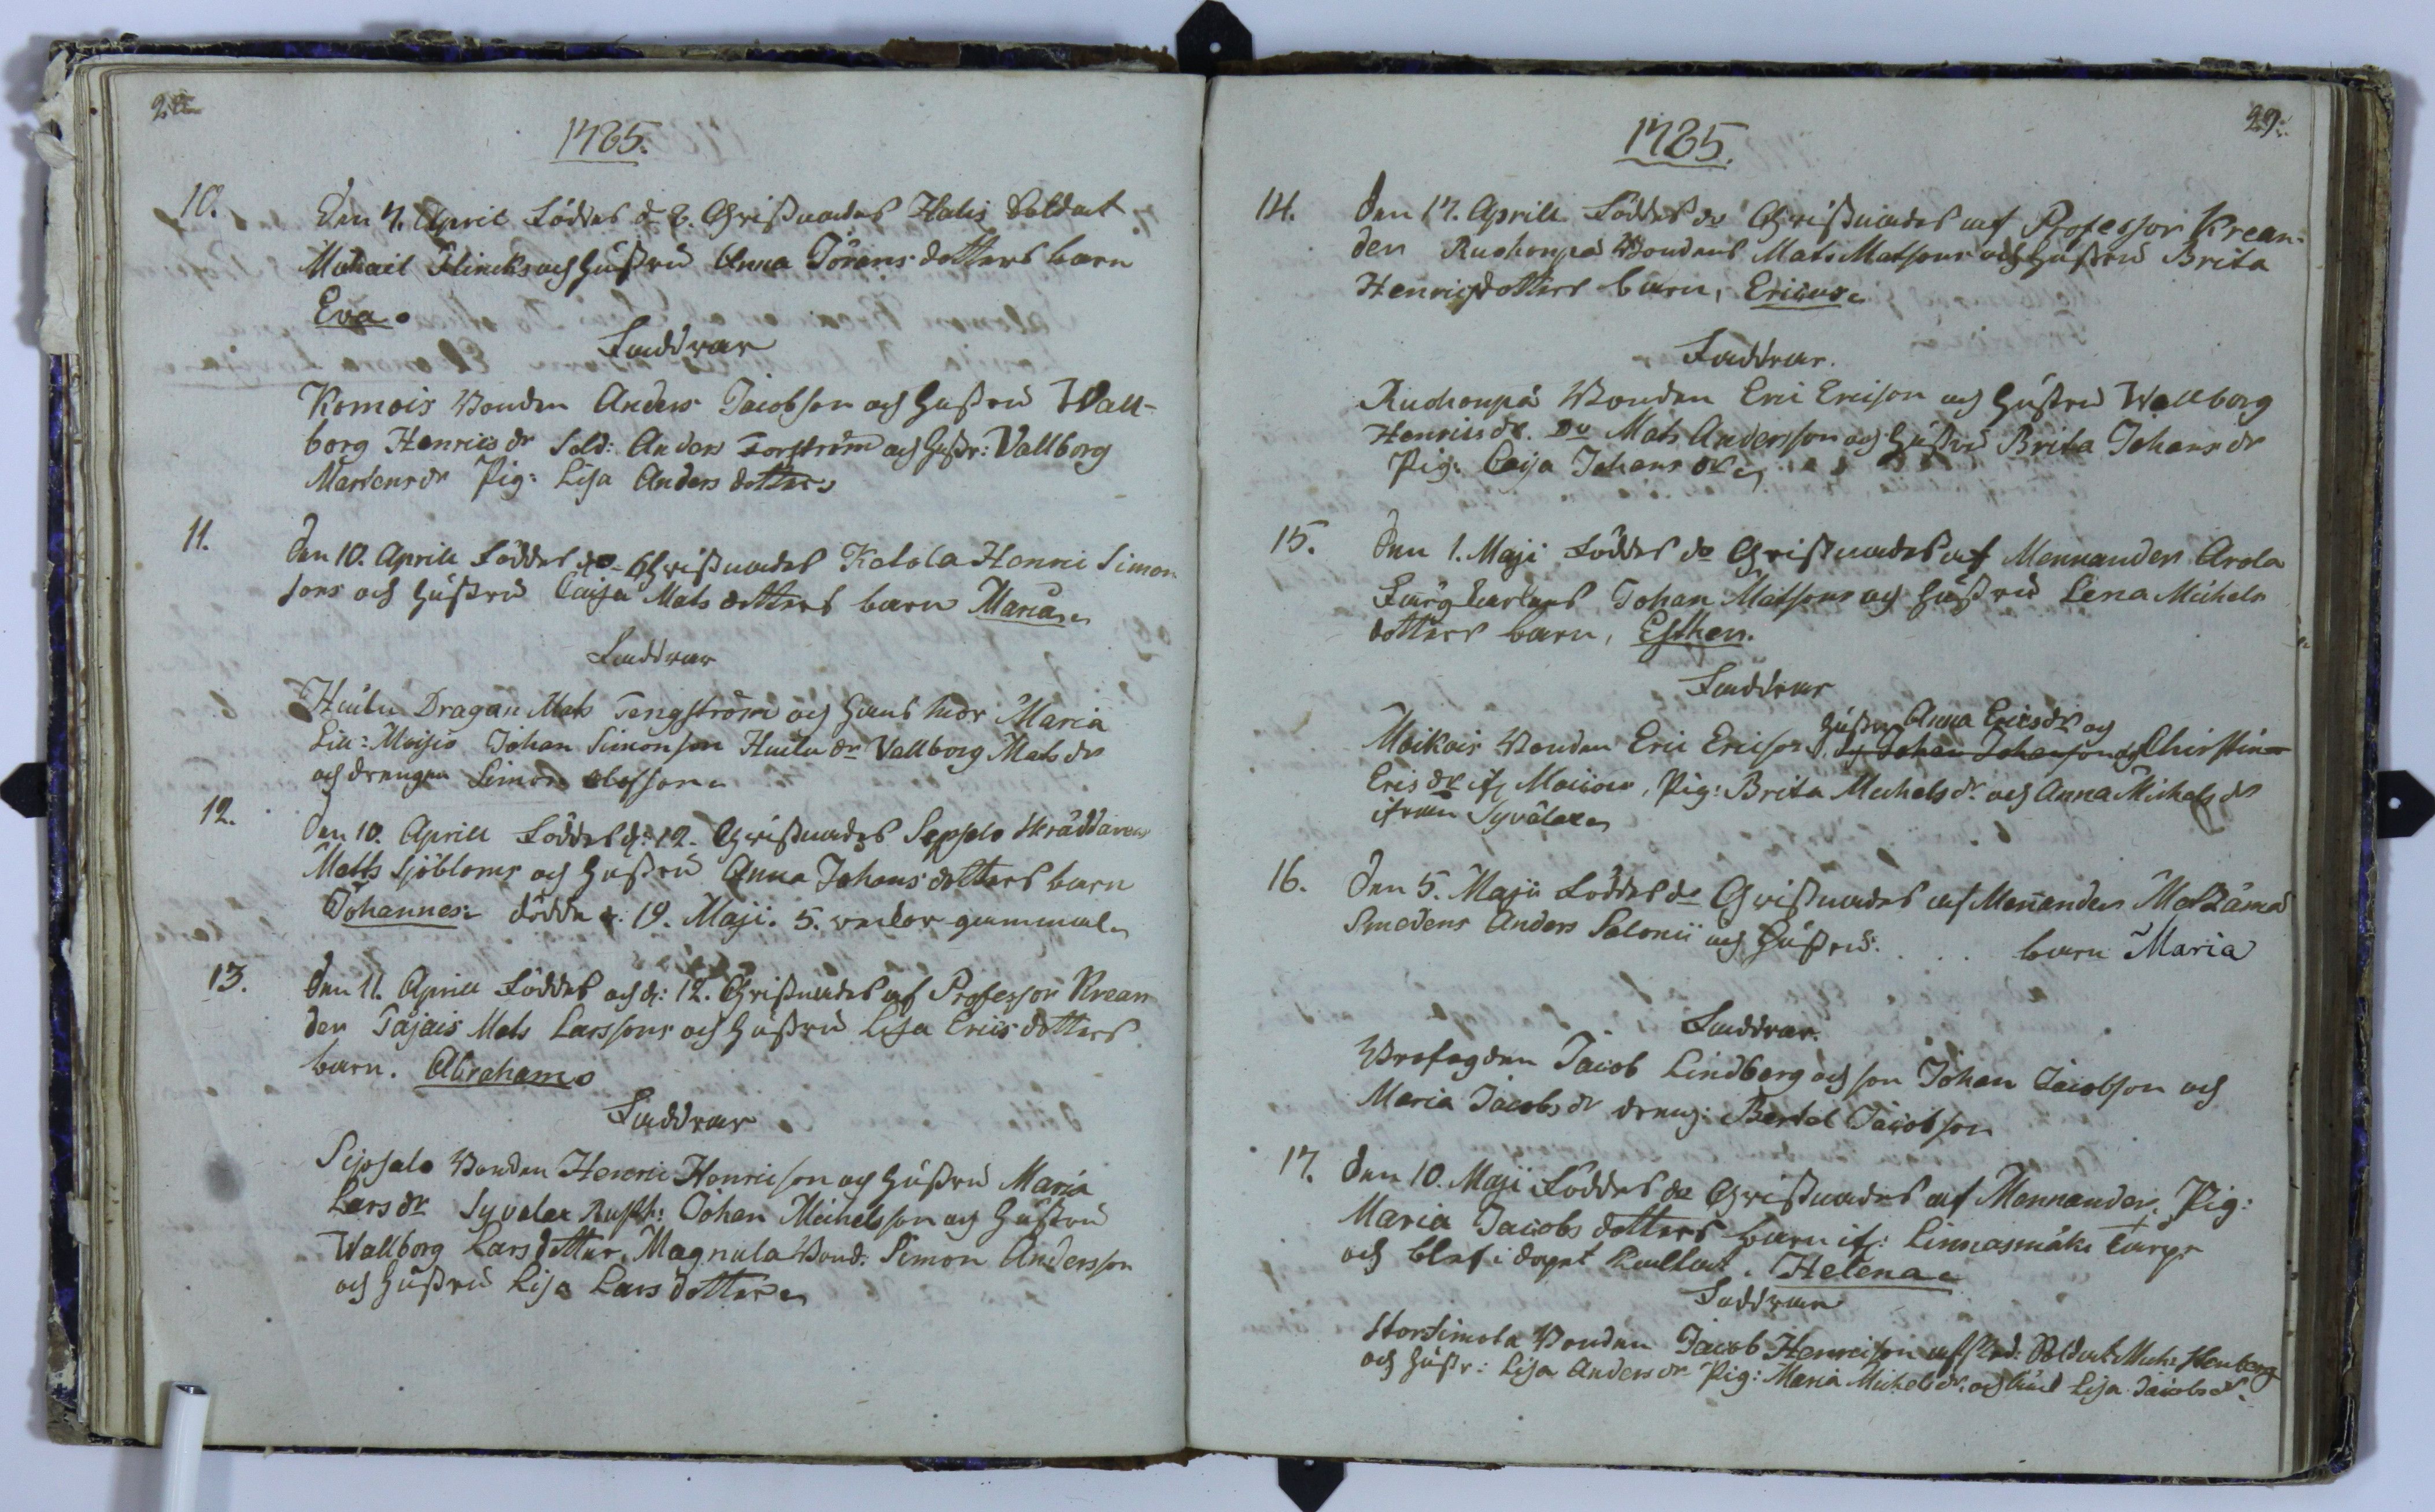 28
1785.
10. Den 7. April Föddes d 8. Christnades Halis Soldat
Michael Flincks och Hustru Anna Jörans dotters barn
Eva.
Faddrar
Komois Bonden Anders Jacobson och Hustru Wall-
borg Henrics dr Sold: Anders Forström och Hustr: Vallborg
Mårtens dr Pig: Lisa Anders dotter
11. Den 10. Aprill Föddes do Christnades Katola Henric Simon
sons och Hustru Caisa Mats dotters barn Maria.
Faddrar
Huilu Dragan Mats Tengström och Hans mor Maria
Lill: Moisio Johan Simonson Huilu dn Vallborg Mats dr
och drengen Simon Olofsson
12. Den 10. Aprill Föddes d: 12. Christnades Seppelo Skräddaren
Matts Sjöbloms och Hustru Anna Johans dotters barn
Johannes. dödde d. 19. Maji. 5. weckor gammal
13. Den 11. Aprill Föddes och d: 12. Christnades af Professor Krean
der Tajais Mats Larssons och Hustru Lisa Erics dotters
barn. Abraham
Faddrar
Sipsalo Bonden Henric Henricson och Hustru Maria
Lars dr Syvälax Rusth: Johan Michelsson och Hustru
Wallborg Lars dotter. Magnula Bond. Simon Andersson
och Hustru Lisa Lars dotter
29.
1785.
14. Den 17. Aprill Föddes do Christnades af Professor Krean-
der Ruohonpä Bondens Mats Matsons och Hustru Brita
Henrics dotters barn, Ericus.
Faddrar.
Ruohonpä Bonden Eric Ericson och Hustru Wallborg
Henrics dr. Do Mats Andersson och Hustru Brita Johans dr
Pig: Caisa Johans dr
15. Den 1. Maji Föddes do Christnades af Mennander Arola
Torgkarlens Johan Matsons och Hustru Lena Michels
dotters barn, Esther.
Faddrar
Hustru Anna Erics dr och
Moikois Bonden Eric Ericson, och Johan Johanson och Christina
Erics dr if Moisio, Pig: Brita Michels dr. och Anna Michels dr
ifrån Syvälax
16. Den 5. Maji Föddes do Christnades af Mennander
Smedens Anders Salonii och Hustru. . . . barn Maria
Faddrar.
Brofogden Jacob Lindberg och son Johan Jacobson och
Maria Jacobs dr dreng: Bertel Jacobson
17. Den 10. Maji Föddes do Christnades af Mennander. Pig:
Maria Jacobs dotters barn if: Linnasmäki Torp
och blef i dopet kallat. Helena
Faddrar
Storsimola Bonden Jacob Henricson afsked: Soldat Mich: Stenberg
och Hustr: Lisa Anders dr Pig: Maria Michels dr. och Lisa Jacobs dr.